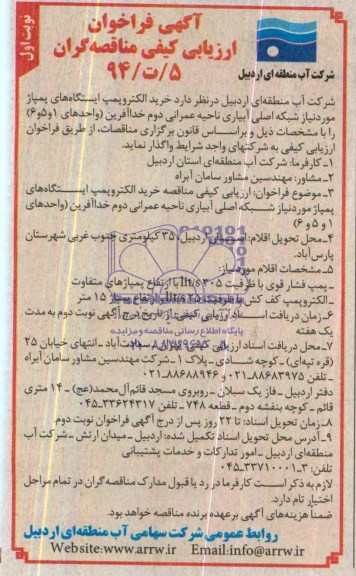 نوبت اول
آگهی فراخوان
ارزیابی کیفی مناقصه‌گران
۹۴/ت/۵
شرکت آب منطقه ای اردبیل
شرکت آب منطقه‌ای اردبیل درنظر دارد خرید الکتروپمپ ایستگاه‌های پمپاژ
موردنیاز شبکه اصلی آبیاری ناحیه عمرانی دوم خداآفرین (واحدهای ۱ و۵ و۶)
را با مشخصات ذیل و براساس قانون برگزاری مناقصات، از طریق فراخوان
ارزیابی کیفی به شرکتهای واجد شرایط واگذار نماید.
۱ـ کارفرما: شرکت آب منطقه‌ای استان اردبیل
۲ـ مشاور: مهندسین مشاور سامان آبراه
۳ـ موضوع فراخوان: ارزیابی کیفی مناقصه خرید الکتروپمپ ایستگاههای
پمپاژ موردنیاز شبکه اصلی آبیاری ناحیه عمرانی دوم خداآفرین (واحدهای
۱ و ۵ و ۶)
۴ـ محل تحویل اقلام: استان اردبیل، ۳۵ کیلومتری جنوب غربی شهرستان
پارس‌آباد.
۵ـ مشخصات اقلام موردنیاز:
ـ پمپ فشار قوی با ظرفیت ۳۰۵ lit/s با ارتفاع پمپاژهای متفاوت
ـ الکتروپمپ کف کش با ظرفیت ۲۵ lit/s با ارتفاع پمپاژ ۱۵ متر
۶ـ زمان دریافت اسناد ارزیابی کیفی: از تاریخ درج آگهی نوبت دوم به مدت
یک هفته
پایگاه اطلاع رسانی مناقصه و مزایده
۷ـ محل دریافت اسناد ارزیابی کیفی: تهران ـ سعادت آباد ـ انتهای خیابان ۲۵
(قره تپه‌ای) ـ کوچه شادی ـ پلاک ۱ ـ شرکت مهندسین مشاور سامان آبراه
ـ تلفن ۸۸۶۸۳۹۷۵ـ۰۲۱ و ۸۸۶۸۸۹۴۶ـ۰۲۱
دفتر اردبیل ـ فاز یک سبلان ـ روبروی مسجد قائم آل محمد(عج) ـ ۱۴ متری
قائم ـ کوچه بنفشه دوم ـ قطعه ۷۴۸ ـ تلفن ۳۳۶۲۴۳۱۷ـ۰۴۵
۸ـ زمان تحویل اسناد: تا ۲۲ روز پس از درج آگهی فراخوان نوبت دوم.
۹ـ آدرس محل تحویل اسناد تکمیل شده: اردبیل ـ میدان ارتش ـ شرکت آب
منطقه‌ای اردبیل ـ امور تدارکات و خدمات پشتیبانی
تلفن: ۳ـ۳۳۷۱۰۰۰۱ـ۰۴۵
لازم به ذکر است کارفرما در رد یا قبول مدارک مناقصه‌گران در تمام مراحل
اختیار تام دارد.
ضمناً هزینه‌های آگهی برعهده برنده مناقصه خواهد بود.
روابط عمومی شرکت سهامی آب منطقه‌ای اردبیل
Website:www.arrw.ir Email:info@arrw.ir